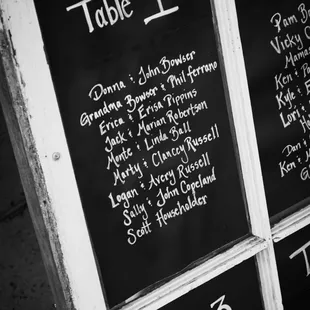 Table 1
Donna & John Bowser
Grandma Bowser & Phil Ferrano
Erica & Erisa Pippins
Jack & Marian Robertson
Monte & Linda Ball
Marty & Clancey Russell
Logan & Avery Russell
Sally & John Copeland
Scott Householder
Pam B
Vicky
Mama
Ken &
Kyle &
Lori
Don &
Ken &
3
T